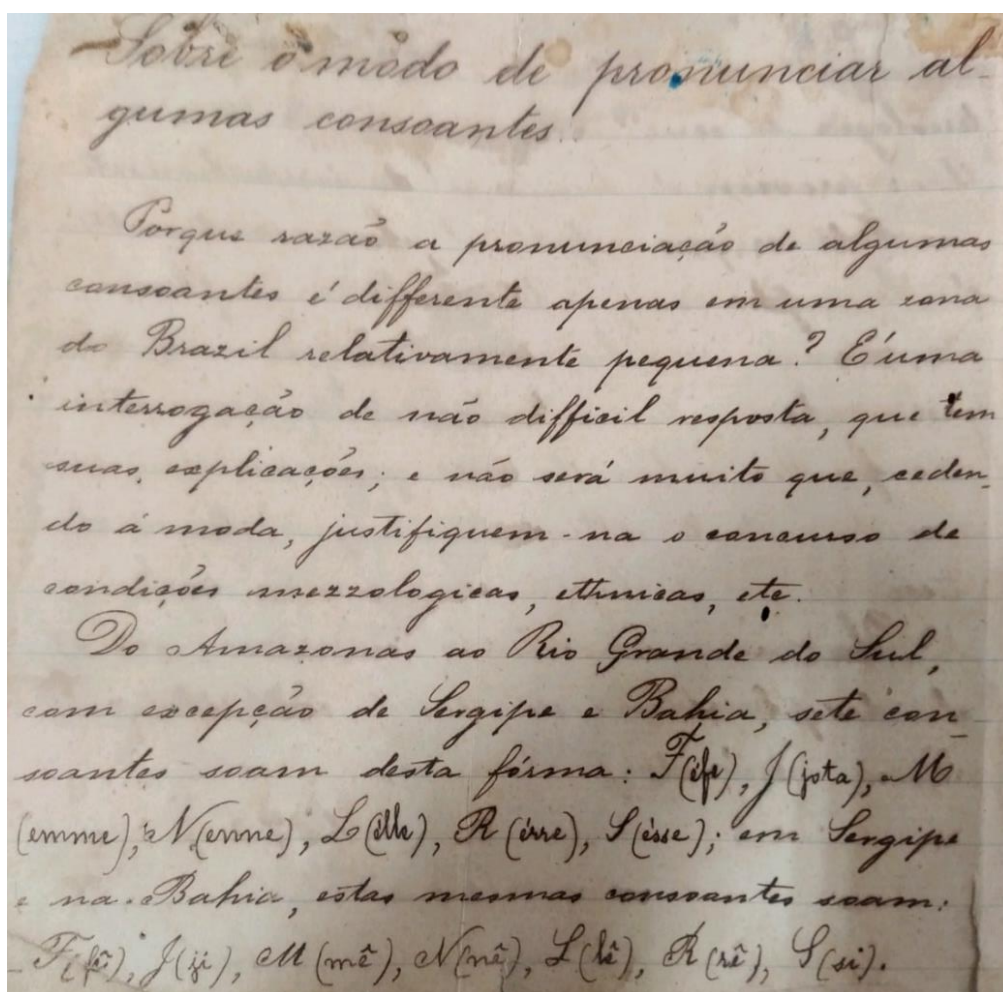 Sobre o modo de pronunciar al-
gumas consoantes.
Porque razão a pronunciação de algumas
consoantes é differente apenas em uma zona
do Brazil relativamente pequena? É uma
interrogação de não difficil resposta, que tem
suas explicações; e não será muito que, ceden-
do á moda, justifiquem-na o concurso de
condições mezzologicas, ethnicas, etc.
Do Amazonas ao Rio Grande do Sul,
com excepção de Sergipe e Bahia, sete con-
soantes soam desta fórma: F (éfe), J (jota), M
(emme), N (enne), L (élle), R (érre), S (ésse); em Sergipe
e na Bahia, estas mesmas consoantes soam:
F (fê), J (ji), M (mê), N (nê), L (lê), R (rê), S (si).